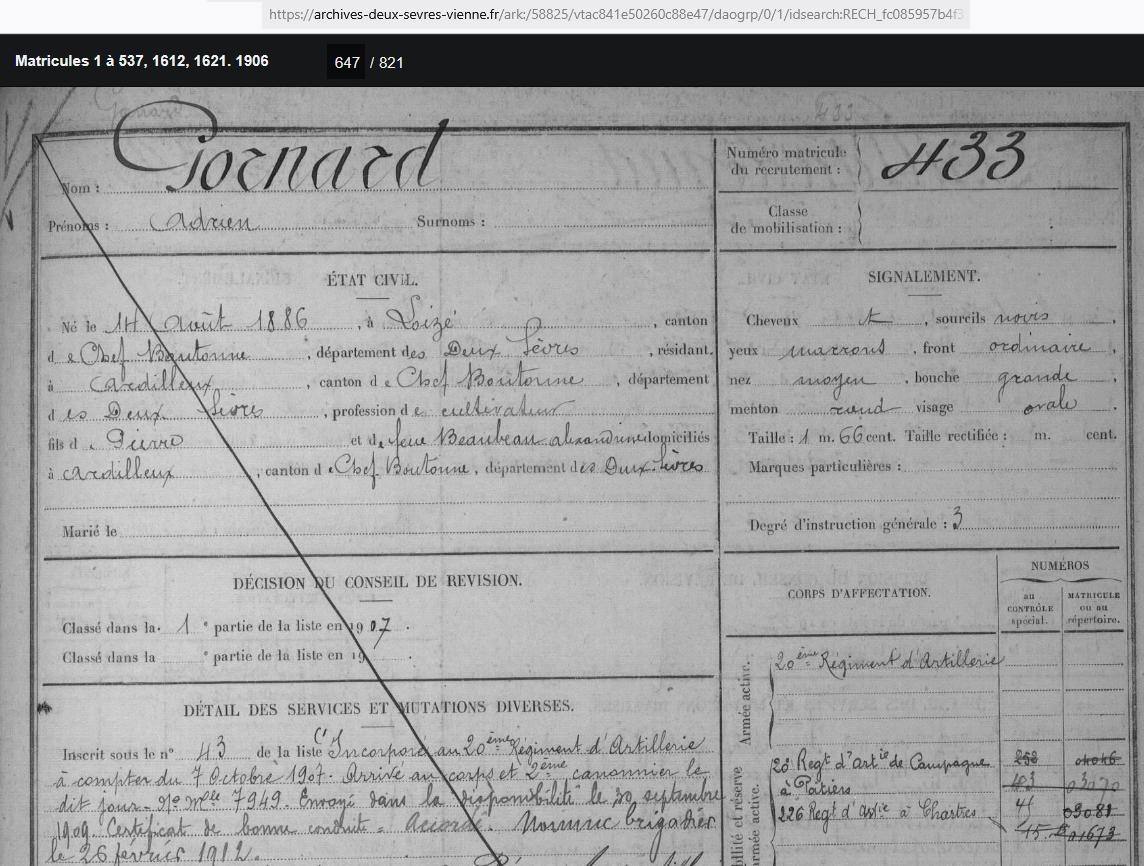 https://archives-deux-sevres-vienne.fr/ark:/58825/vtac841e50260c88e47/daogrp/0/1/idsearch:RECH_fc085957b4f3
Matricules 1 à 537, 1612, 1621. 1906
647 / 821
Nom : Gornard
Prénoms : Adrien Surnoms :
Numéro matricule
du recrutement : 433
Classe
de mobilisation :
ÉTAT CIVIL.
Né le 14 août 1886, à Loizé, canton
de Chef Boutonne, département des Deux Sèvres, résidant
à Ardilleux, canton de Chef Boutonne, département
des Deux Sèvres, profession de cultivateur
fils de Pierre et de feue Beaubeau alexandrine domiciliés
à ardilleux, canton de Chef Boutonne, département des Deux Sèvres
Marié le
SIGNALEMENT.
Cheveux et, sourcils noirs,
yeux marrons, front ordinaire,
nez moyen, bouche grande,
menton rond visage ovale.
Taille : 1 m. 66 cent. Taille rectifiée : m. cent.
Marques particulières :
Degré d'instruction générale : 3
DÉCISION DU CONSEIL DE REVISION.
Classé dans la 1e partie de la liste en 1907.
Classé dans la e partie de la liste en 19 .
CORPS D'AFFECTATION.
NUMÉROS
au
CONTRÔLE
spécial.
MATRICULE
ou au
répertoire.
Armée active.
20ème Régiment d'Artillerie
20 Regt d'artie de Campagne
à Poitiers
226 Regt d'Artie à Chartres 41 03081
DÉTAIL DES SERVICES ET MUTATIONS DIVERSES.
Inscrit sous le n° 43 de la liste Incorporé au 20ème Régiment d'Artillerie
à compter du 7 Octobre 1907. Arrivé au corps et 2ème canonnier le
dit jour. No mle 7949. Envoyé dans la disponibilité le 30 septembre
1909. Certificat de bonne conduite = Accordé. Nommé brigadier
le 26 février 1912.